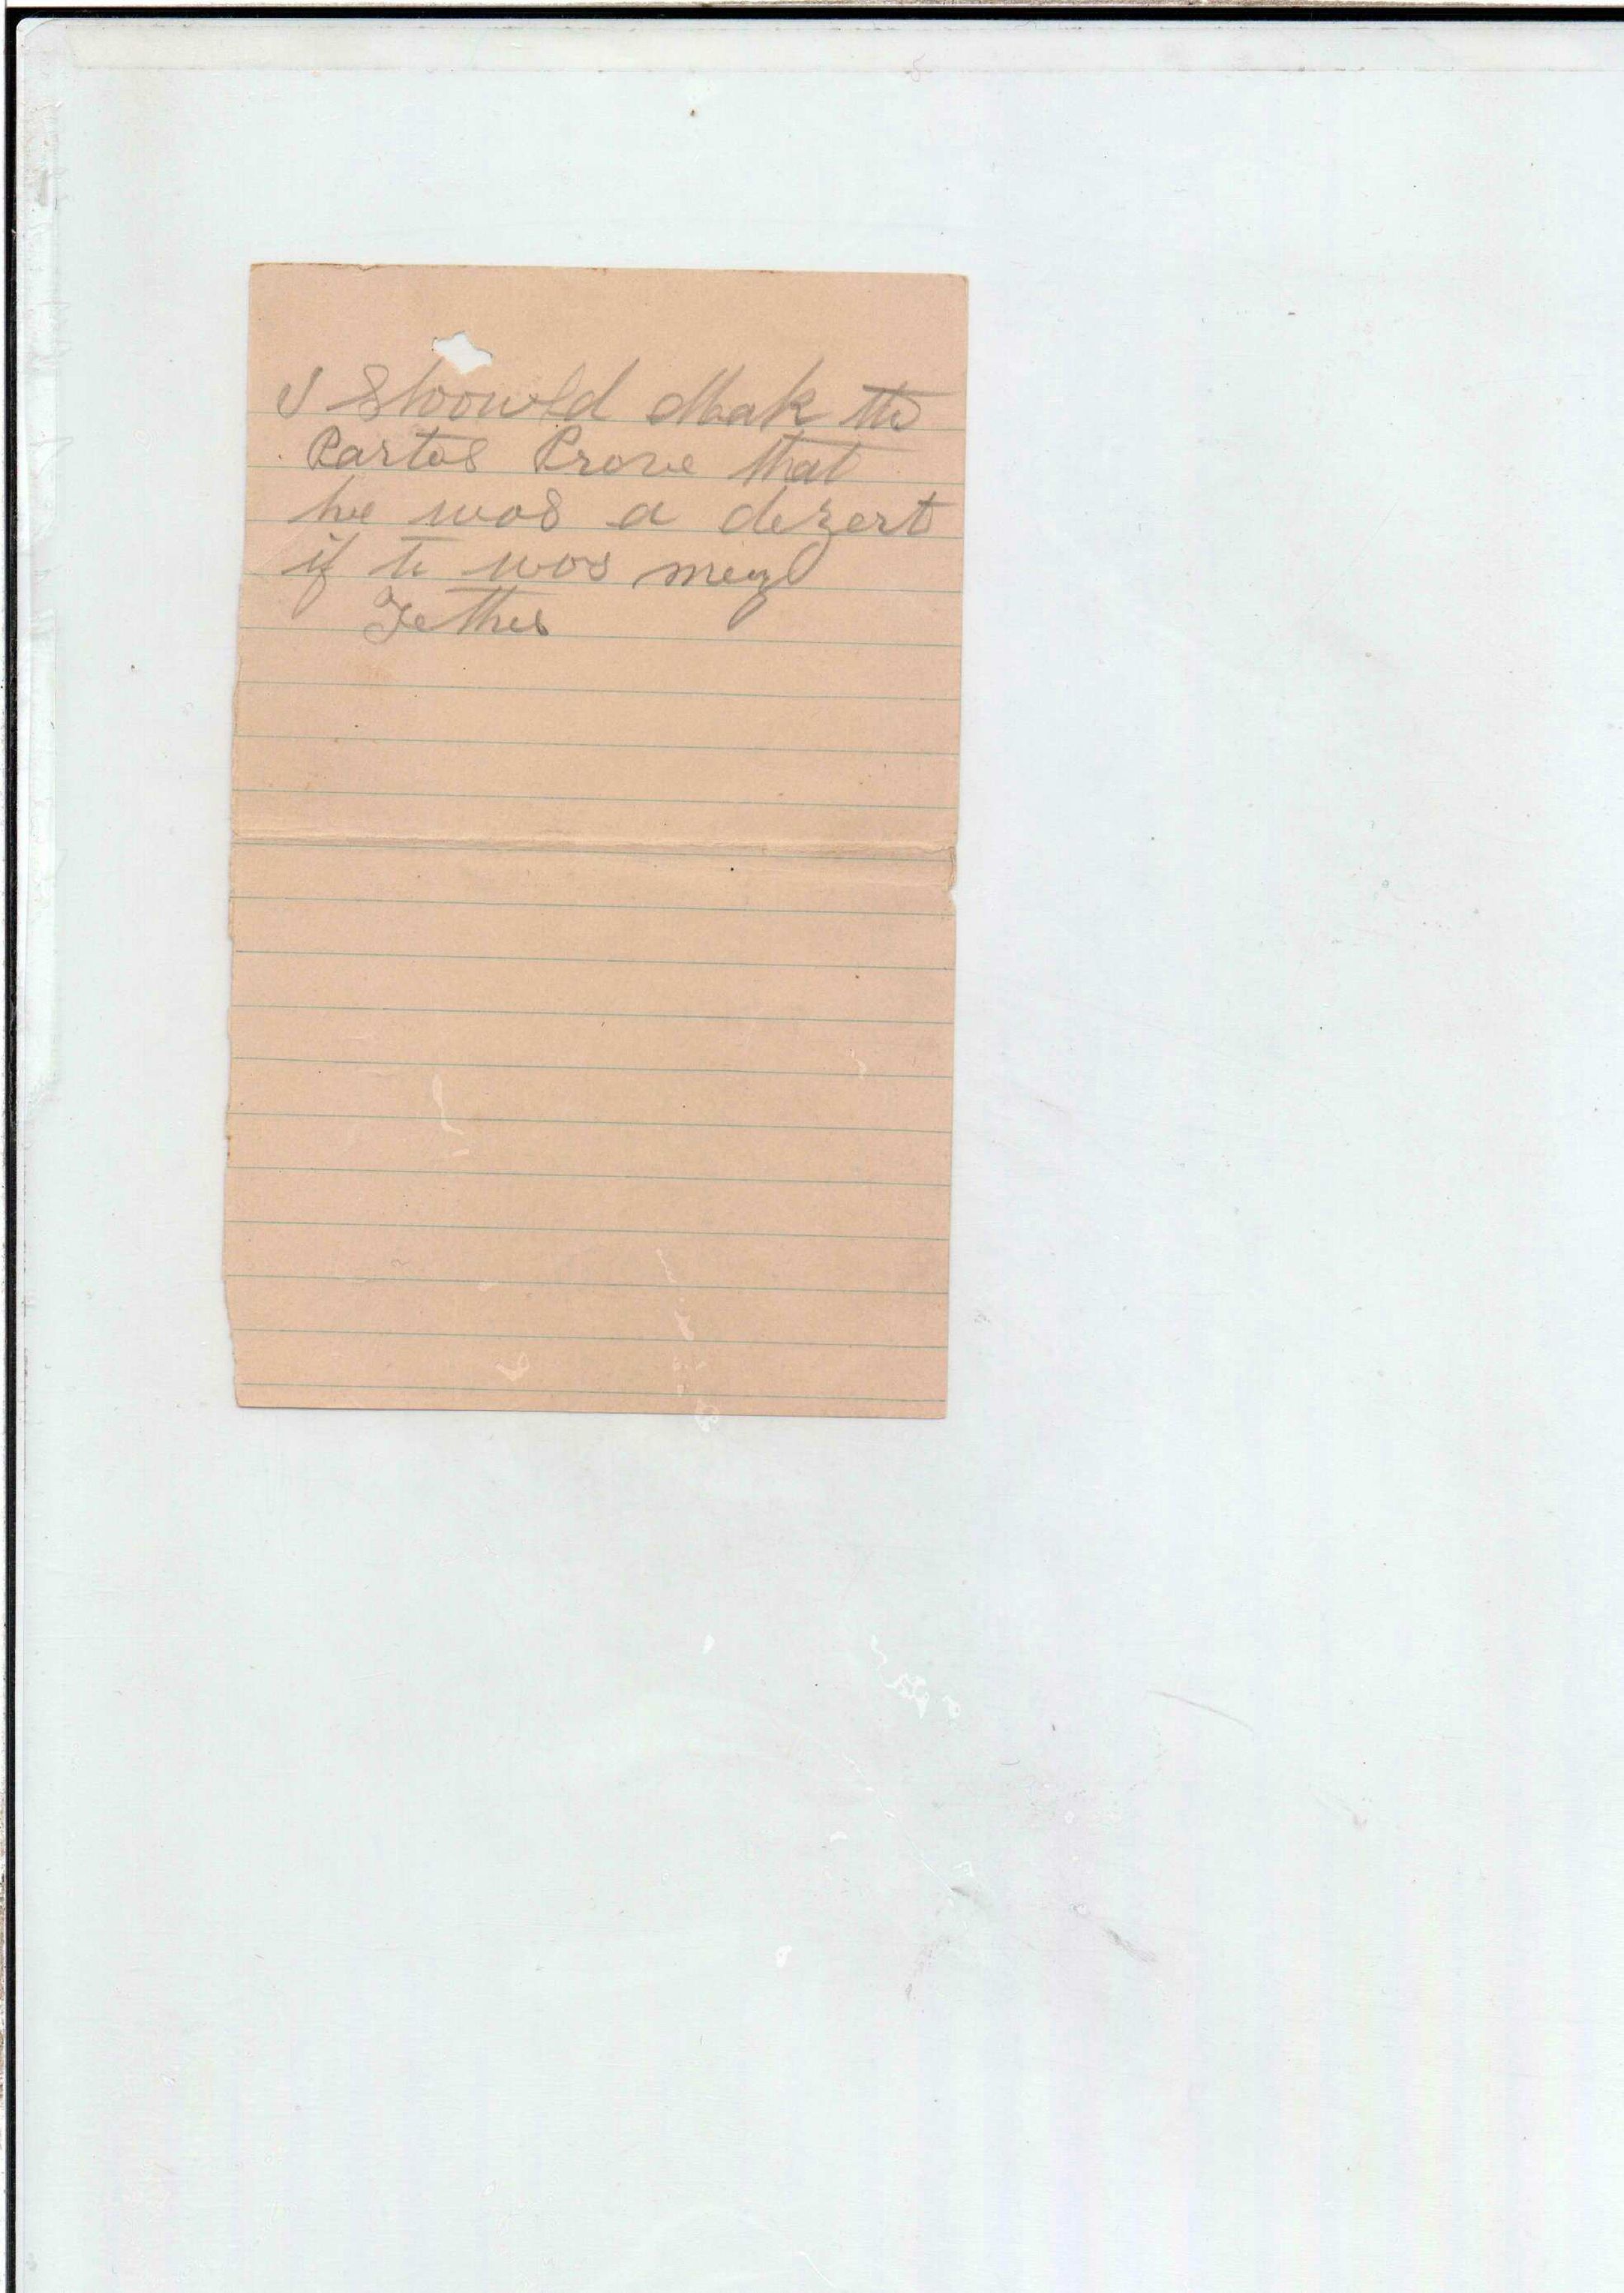 I Shoowld Mak the
Partes Prove that
he was a dezert
if te was mey
Fether